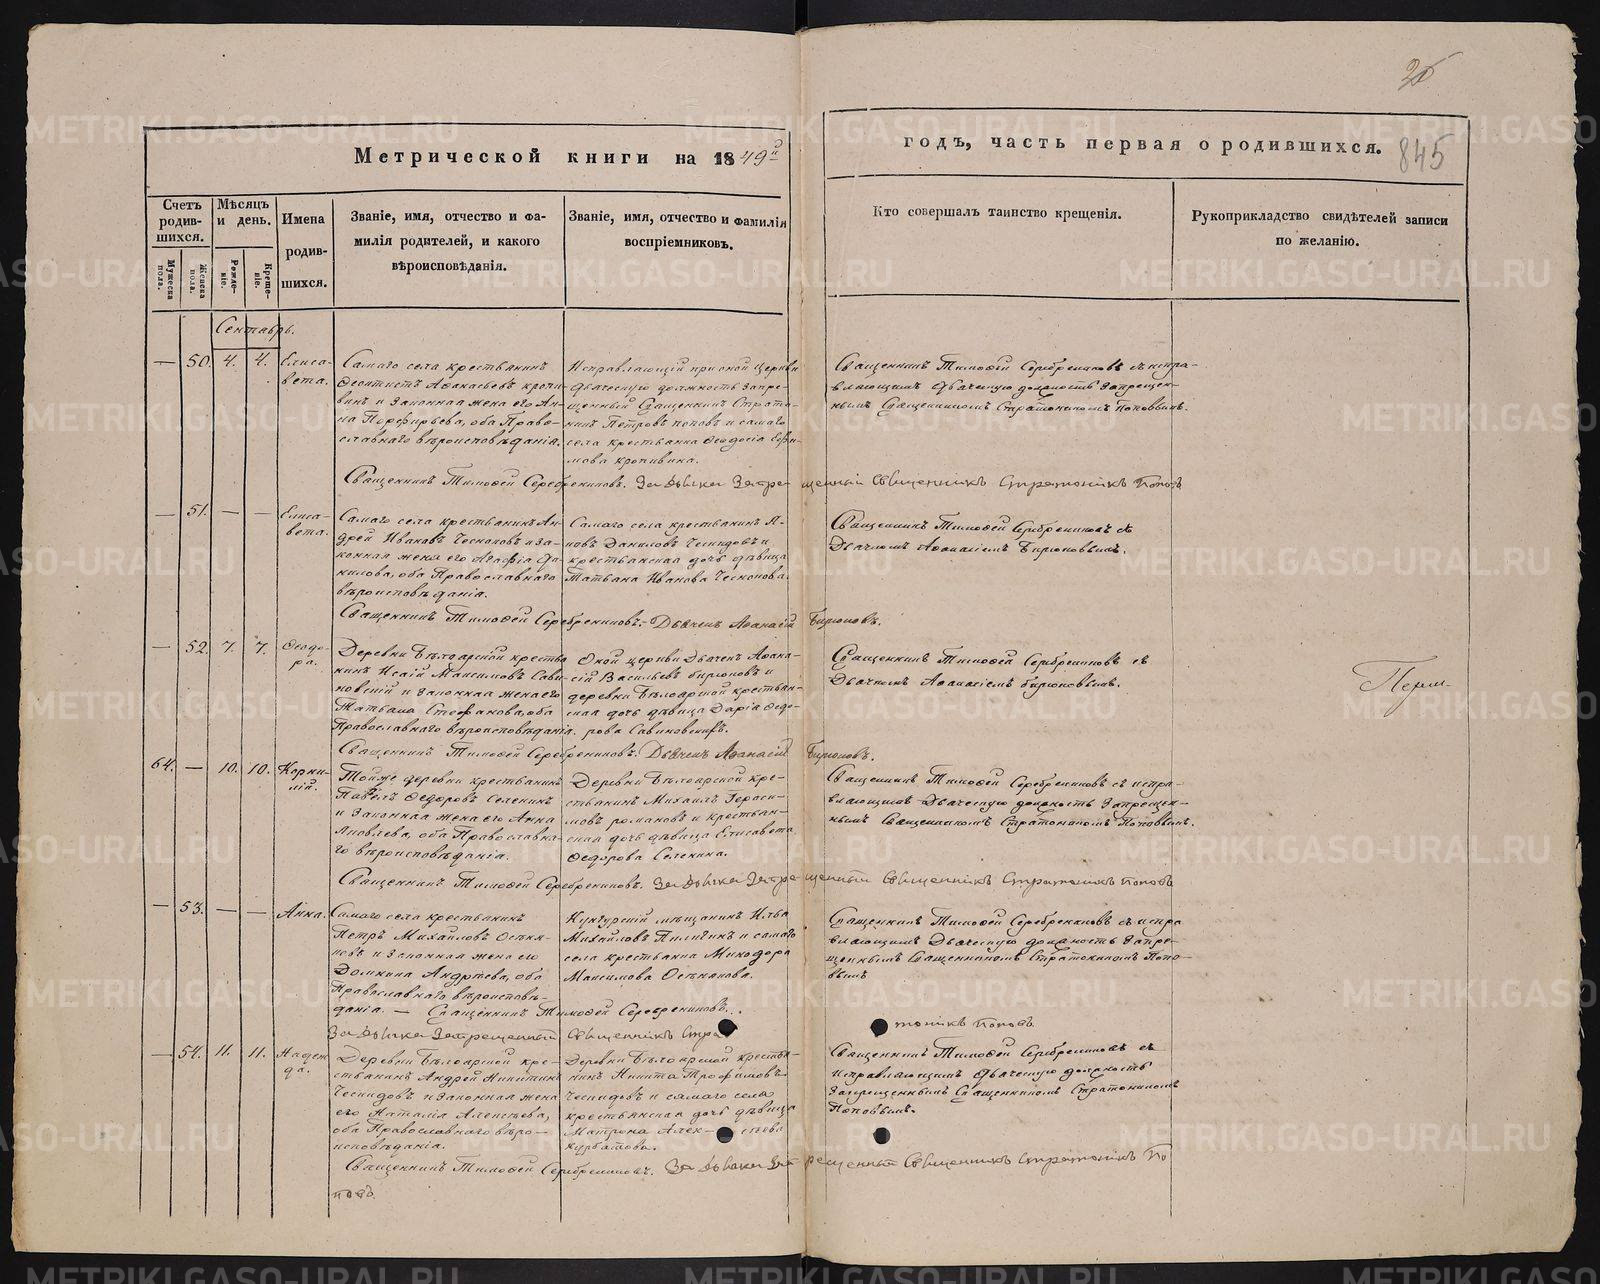 25
845
Метрической книги на 1849й
годъ, часть первая о родившихся.
Счетъ родив-шихся.
Мужеска пола.
Женска пола.
Мѣсяцъ и день.
Рожде-ніе.
Креще-ніе.
Имена родив-шихся.
Званіе, имя, отчество и фа-
милія родителей, и какого
вѣроисповѣданія.
Званіе, имя, отчество и фамилія
воспріемниковъ.
Кто совершалъ таинство крещенія.
Рукоприкладство свидѣтелей записи
по желанію.
Сентябрь.
— 50. 4. 4. Елиса-
вета.
Самаго села крестьянинъ
Феоктистъ Афанасьевъ кропи-
винъ и законная жена его Ан-
на Порфирьева, оба Право-
славнаго вѣроисповѣданія.
Исправляющій при оной церкви
дьяческую должность запре-
щенный Священникъ Страто-
никъ Петровъ Поповъ и самаго
села крестьянка Феодосія Ефи-
мова кропивина.
Священникъ Тимофей Серебрениковъ съ испра-
вляющимъ дьяческую должность запрещен-
нымъ Священникомъ Стратоникомъ Поповымъ.
Священникъ Тимофей Серебрениковъ. За дьячка Запрещенный Священникъ Стратоникъ Поповъ
— 51. — — Елиса-
вета.
Самаго села крестьянинъ Ан-
дрей Ивановъ Чесноковъ и за-
конная жена его Агафія Да-
нилова, оба Православнаго
вѣроисповѣданія.
Самаго села крестьянинъ
Даниловъ и
крестьянская дочь дѣвица
Татьяна Иванова Чеснокова.
Священникъ Тимофей Серебрениковъ съ
Дьячкомъ Афанасіемъ Бирюковымъ.
Священникъ Тимофей Серебрениковъ. Дьячекъ Афанасій Бирюковъ.
— 52. 7. 7. Феодо-
ра.
Деревни Бѣлоярской крестья
нинъ Исаій Максимовъ Сави-
новскій и законная жена его
Татьяна Стефанова, оба
Православнаго вѣроисповѣданія.
Оной церкви Дьячекъ Афана-
сій Васильевъ Бирюковъ и
деревни Бѣлоярской крестьян-
ская дочь дѣвица Дарія Федо-
рова Савиновскихъ.
Священникъ Тимофей Серебрениковъ съ
Дьячкомъ Афанасіемъ Бирюковымъ.
Священникъ Тимофей Серебрениковъ. Дьячекъ Афанасій Бирюковъ.
64. — 10. 10. Корни-
лій.
Тойже деревни крестьянинъ
Павелъ Федоровъ Селенинъ
и законная жена его Анна
Яковлева, оба Православна-
го вѣроисповѣданія.
Деревни Бѣлоярской кре-
стьянинъ Михаилъ Гераси-
мовъ романовъ и крестьян-
ская дочь дѣвица Елисавета
Федорова Селенина.
Священникъ Тимофей Серебрениковъ съ испра-
вляющимъ Дьяческую должность запрещен-
нымъ Священникомъ Стратоникомъ Поповымъ.
Священникъ Тимофей Серебрениковъ. За дьячка Запрещенный Священникъ Стратоникъ Поповъ
— 53. — — Анна.
Самаго села крестьянинъ
Петръ Михайловъ
и законная жена его
Домника Андреева, оба
Православнаго вѣроисповѣ-
данія. — Священникъ Тимофей Серебрениковъ.
Кунгурскій мѣщанинъ Илья
Михайловъ Пиличкинъ и самаго
села крестьянка Минодора
Максимова
Священникъ Тимофей Серебрениковъ съ испра
вляющимъ Дьяческую должность запре-
щеннымъ Священникомъ Стратоникомъ Попо-
вымъ
За дьячка Запрещенный Священникъ Стратоникъ Поповъ.
— 54. 11. 11. Надеж
да.
Деревни Бѣлоярской кре-
стьянинъ Андрей Никитинъ
Чесидовъ и законная жена
его Наталія Алексѣева,
оба Православнаго вѣро-
исповѣданія.
Деревни Бѣлоярской крестья-
нинъ Никита Трофимовъ
Чесидовъ и самаго села
крестьянская дочь дѣвица
Матрона Алексѣева
курбатова.
Священникъ Тимофей Серебрениковъ съ
исправляющимъ Дьяческую должность
запрещеннымъ Священникомъ Стратоникомъ
Поповымъ.
Священникъ Тимофей Серебрениковъ. За дьячка Запрещенный Священникъ Стратоникъ По
повъ.
METRIKI.GASO-URAL.RU